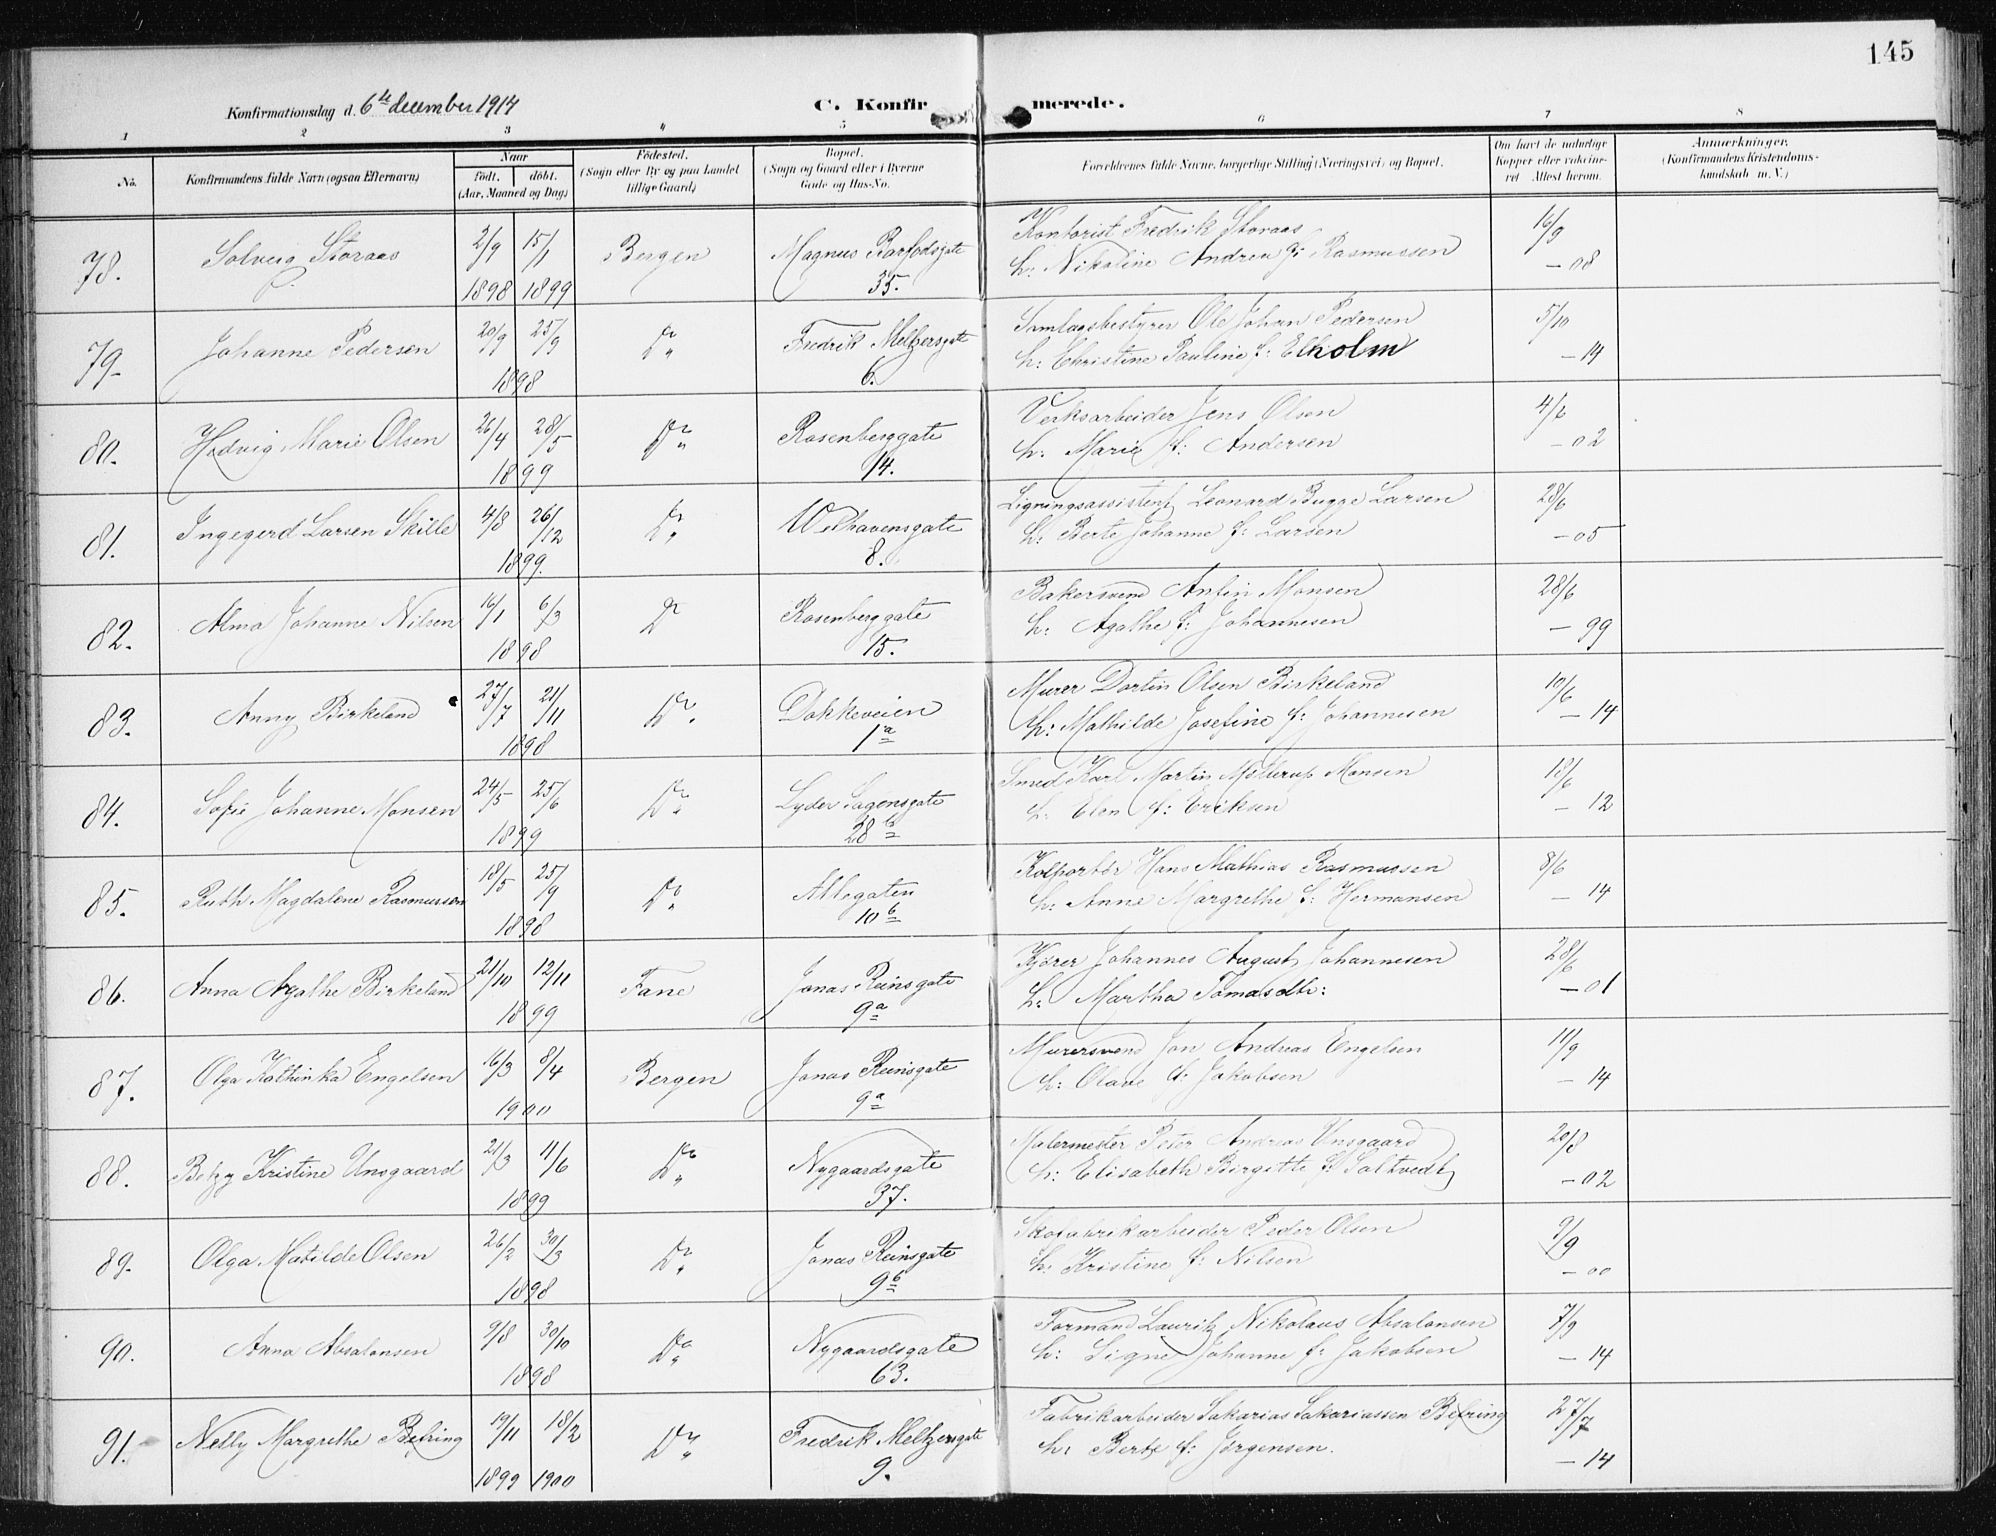 145
Konfirmationsdag d. 6te december 1914
C. Konfirmerede.
1 2 3 4 5 6 7 8
No.
Konfirmandens fulde Navn (ogsaa Efternavn)
Naar
født. døbt.
(Aar, Maaned og Dag)
Fødested.
(Sogn eller By og paa Landet
tillige Gaard.)
Bopæl.
(Sogn og Gaard eller i Byerne
Gade og Hus-No.
Forældrenes fulde Navne, borgerlige Stilling (Næringsvei) og Bopæl.
Om havt de naturlige
Kopper eller vakcine-
ret Attest herom.
Anmærkninger.
(Konfirmandens Kristendoms-
kundskab m. V.)
78. Solveig Storaas 2/9 1898 15/1 1899 Bergen Magnus Barfodsgate 35. Kontorist Fredrik Storaas
h. Nikoline Andrea f: Rasmussen 16/9 – 08
79. Johanne Pedersen 20/9 25/9 1898 Do Fredrik Meltzersgate 6. Samlagsbestyrer Ole Johan Pedersen
h: Christine Pauline f: Ekholm 5/10 – 14
80. Hedvig Marie Olsen 26/4 28/5 1899 Do Rosenberggate 14. Verksarbeider Jens Olsen
h: Marie f: Andersen 4/6 – 02
81. Ingegerd Larsen Skille 4/8 26/12 1899. Do Welhavensgate 8. Ligningsassistent Leonard Bugge Larsen
h: Berte Johanne f: Larsen 28/6 – 05
82. Alma Johanne Nilsen 16/1 6/3 1898 Do Rosenberggate 15. Bakersvend Antin Monsen
h: Agathe f: Johannesen 28/6 – 99
83. Anny Birkeland 27/7 21/11 1898 Do Dokkeveien 1a Murer Dortin Olsen Birkeland
h: Mathilde Josefine f: Johannesen 10/6 – 14
84. Sofie Johanne Monsen 24/5 25/6 1899 Do Lyder Sagensgate 28b Smed Karl Martin Monsen
h. Elen f: Eriksen 18/6 – 12
85. Ruth Magdalene Rasmussen 18/5 25/9 1898 Do Allegaten 10b Kolportør Hans Mathias Rasmussen
h: Anne Margrethe f: Hermansen 8/6 – 14
86. Anna Agathe Birkeland 21/10 12/11 1899 Fane Jonas Reinsgate 9a Kjører Johannes August Johannesen
h: Martha Tomasdtr: 28/6 – 01
87. Olga Kathinka Engelsen 16/3 8/4 1900 Bergen Jonas Reinsgate 9a Murersvend Jon Andreas Engelsen
h: Olave f: Jakobsen 11/9 – 14
88. Betzy Kristine Unsgaard 21/3 11/6 1899 Do Nygaardsgate 37. Malermester Peter Andreas Unsgaard
h: Elisabeth Birgitte f: Saltvedt 20/8 – 02
89. Olga Matilde Olsen 26/2 30/3 1898 Do Jonas Reinsgate 9b Skofabrikarbeider Peder Olsen
h: Kristine f: Nilsen 9/9 – 00
90. Anna Absalonsen 9/8 30/10 1898 Do Nygaardsgate 63. Formand Laurik Nikolaus Absalonsen
h: Signe Johanne f: Jakobsen 7/9 – 14
91. Nelly Margrethe Befring 19/11 1899 18/2 1900 Do Fredrik Meltzersgate 9. Fabrikarbeider Sakarias Sakariassen Befring
h: Berte f: Jørgensen. 27/7 – 14